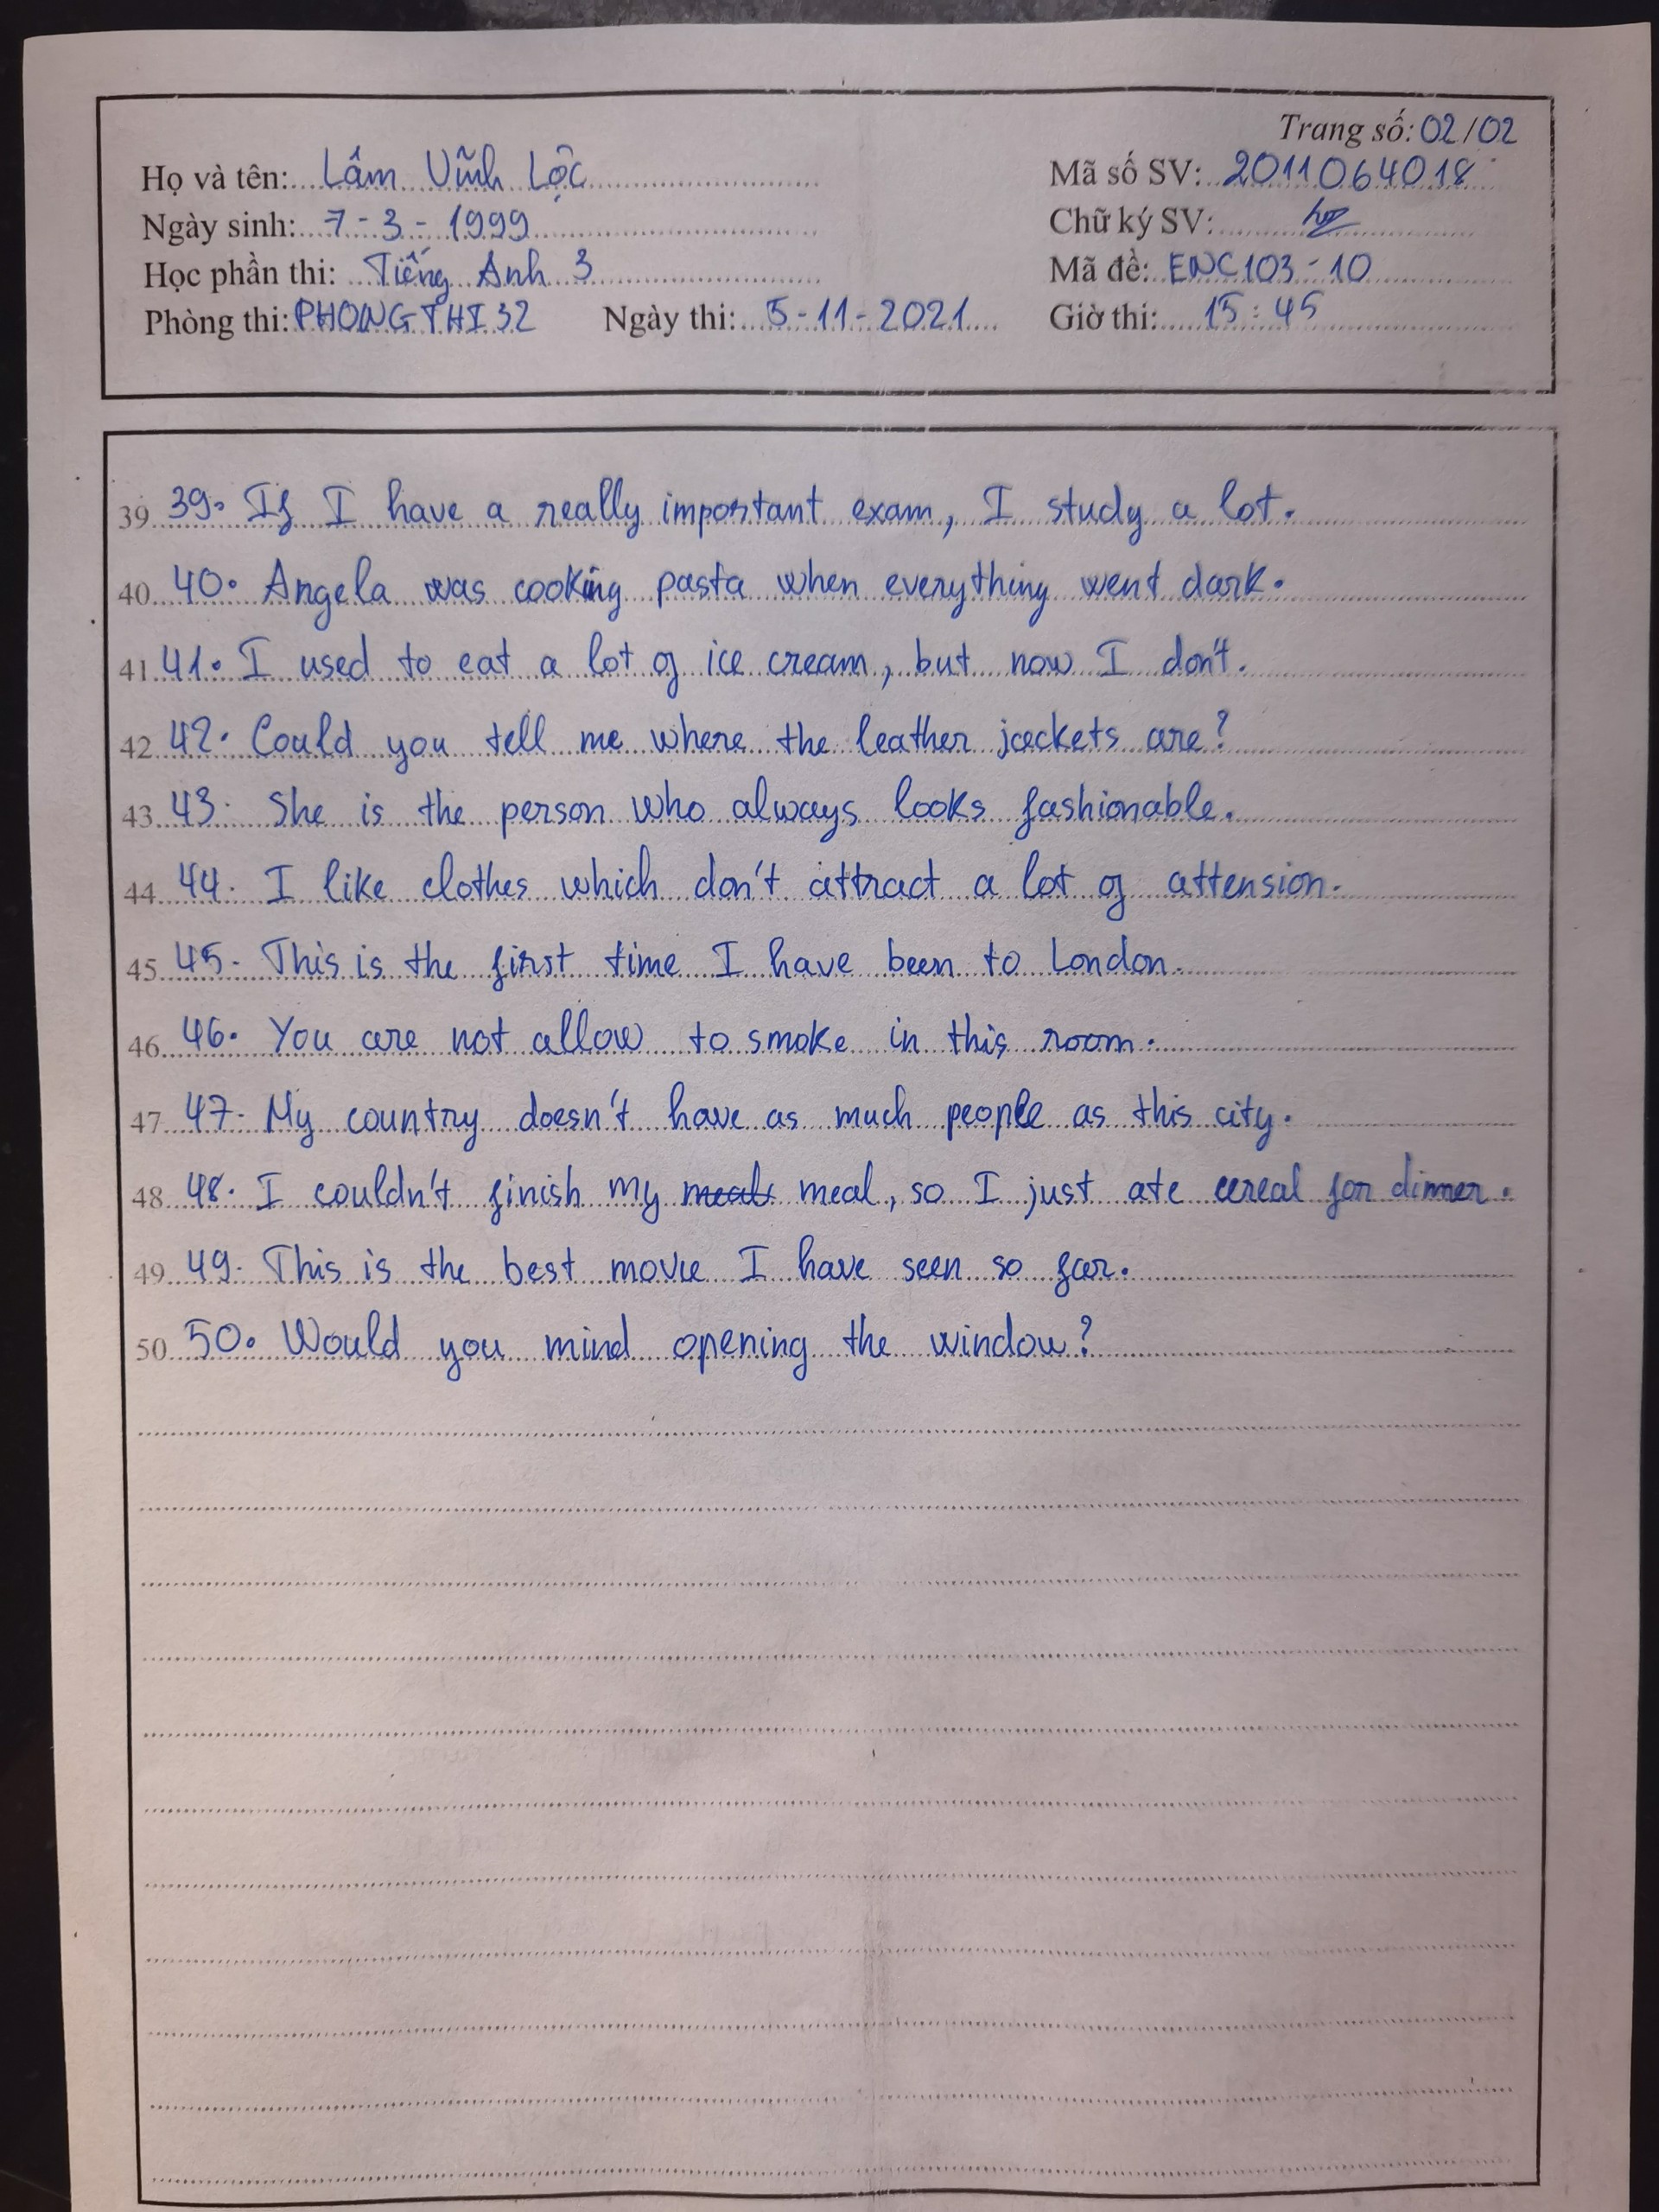 Trang số: 02/02
Họ và tên: Lâm Vĩnh Lộc Mã số SV: 2011064018
Ngày sinh: 7-3-1999 Chữ ký SV:
Học phần thi: Tiếng Anh 3 Mã đề: ENC103-10
Phòng thi: PHONG THI 32 Ngày thi: 5-11-2021 Giờ thi: 15:45
39 39. If I have a really important exam, I study a lot.
40 40. Angela was cooking pasta when everything went dark.
41 41. I used to eat a lot of ice cream, but now I don't.
42 42. Could you tell me where the leather jackets are?
43 43. She is the person who always looks fashionable.
44 44. I like clothes which don't attract a lot of attension.
45 45. This is the first time I have been to London.
46 46. You are not allow to smoke in this room.
47 47. My country doesn't have as much people as this city.
48 48. I couldn't finish my meal, so I just ate cereal for dinner.
49 49. This is the best movie I have seen so far.
50 50. Would you mind opening the window?